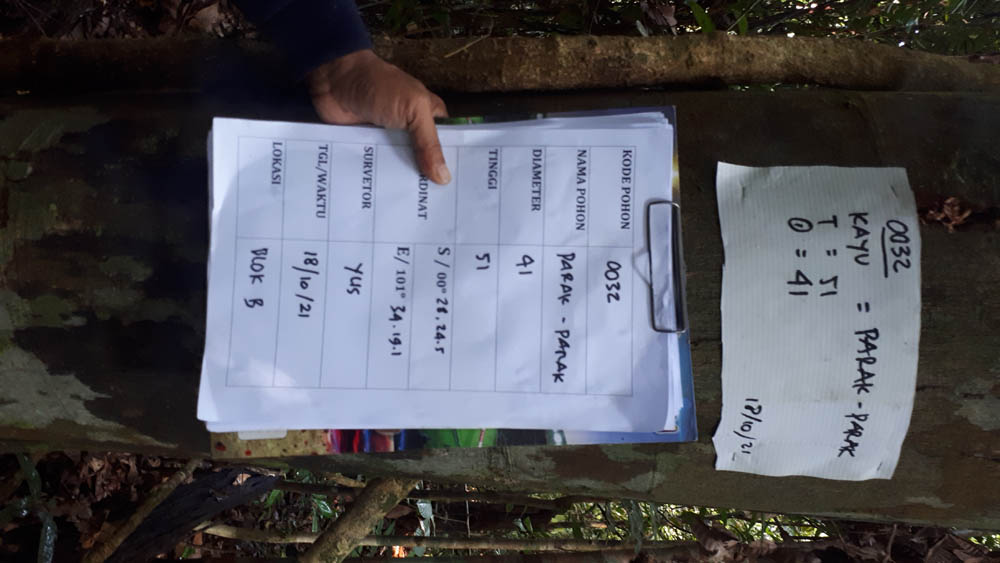 0032
KAYU = PARAK - PARAK
T = 51
Ⓘ = 41
18/10/21
KODE POHON 0032
NAMA POHON PARAK - PARAK
DIAMETER 41
TINGGI 51
S / 00° 28.24.5
RDINAT
E/ 101° 34.19.1
SURVETOR YUS
TGL/WAKTU 18/10/21
LOKASI BLOK B